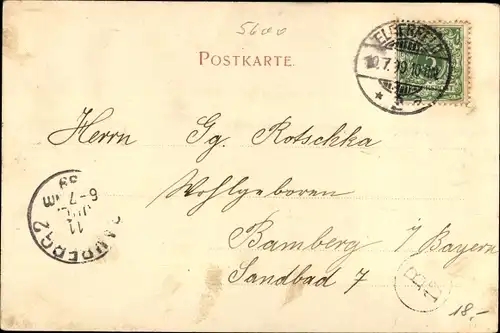 5600
POSTKARTE.
ELBERFELD
.7.99.10-11
*
Herrn Gg. Rotschka
Wohlgeboren
Bamberg i/Bayern
Sandbad 7
BAMBERG 2
11
JUL
6-7
99
18.-